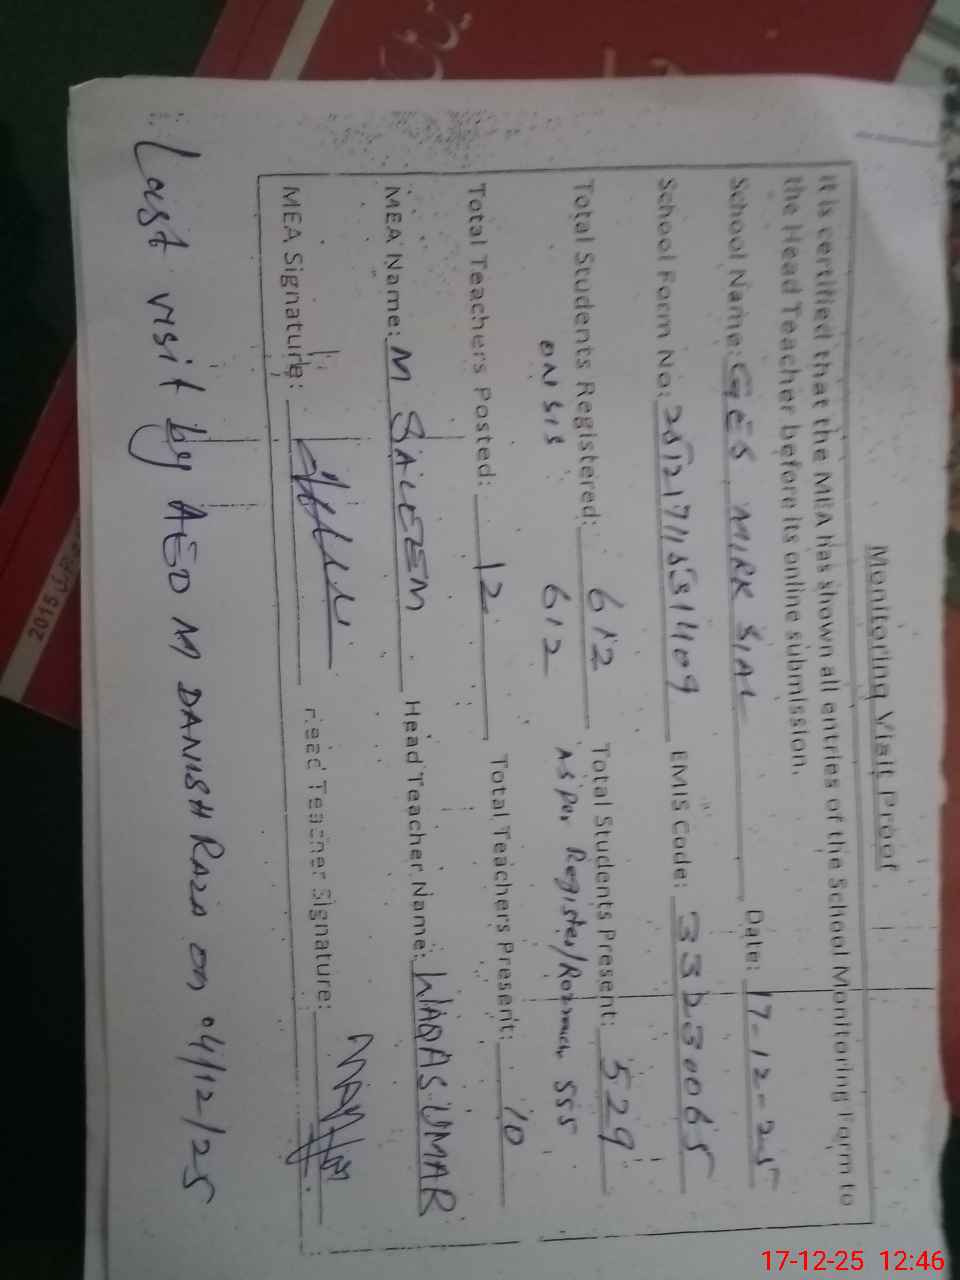 Monitoring Visit Proof
It is certified that the MEA has shown all entries of the School Monitoring Form to
the Head Teacher before its online submission.
School Name: GES MIRK SIAL Date: 17-12-25
School Form No: EMIS Code: 33230065
Total Students Registered: 612 Total Students Present: 529
ON SIS 612 As per Register/ 555
Total Teachers Posted: 12 Total Teachers Present: 10
MEA Name: M SALEEM Head Teacher Name: WAQAS UMAR
MEA Signature: Head Teacher Signature:
Last visit by AEO M DANISH RAZA on 04/12/25
2015
17-12-25 12:46